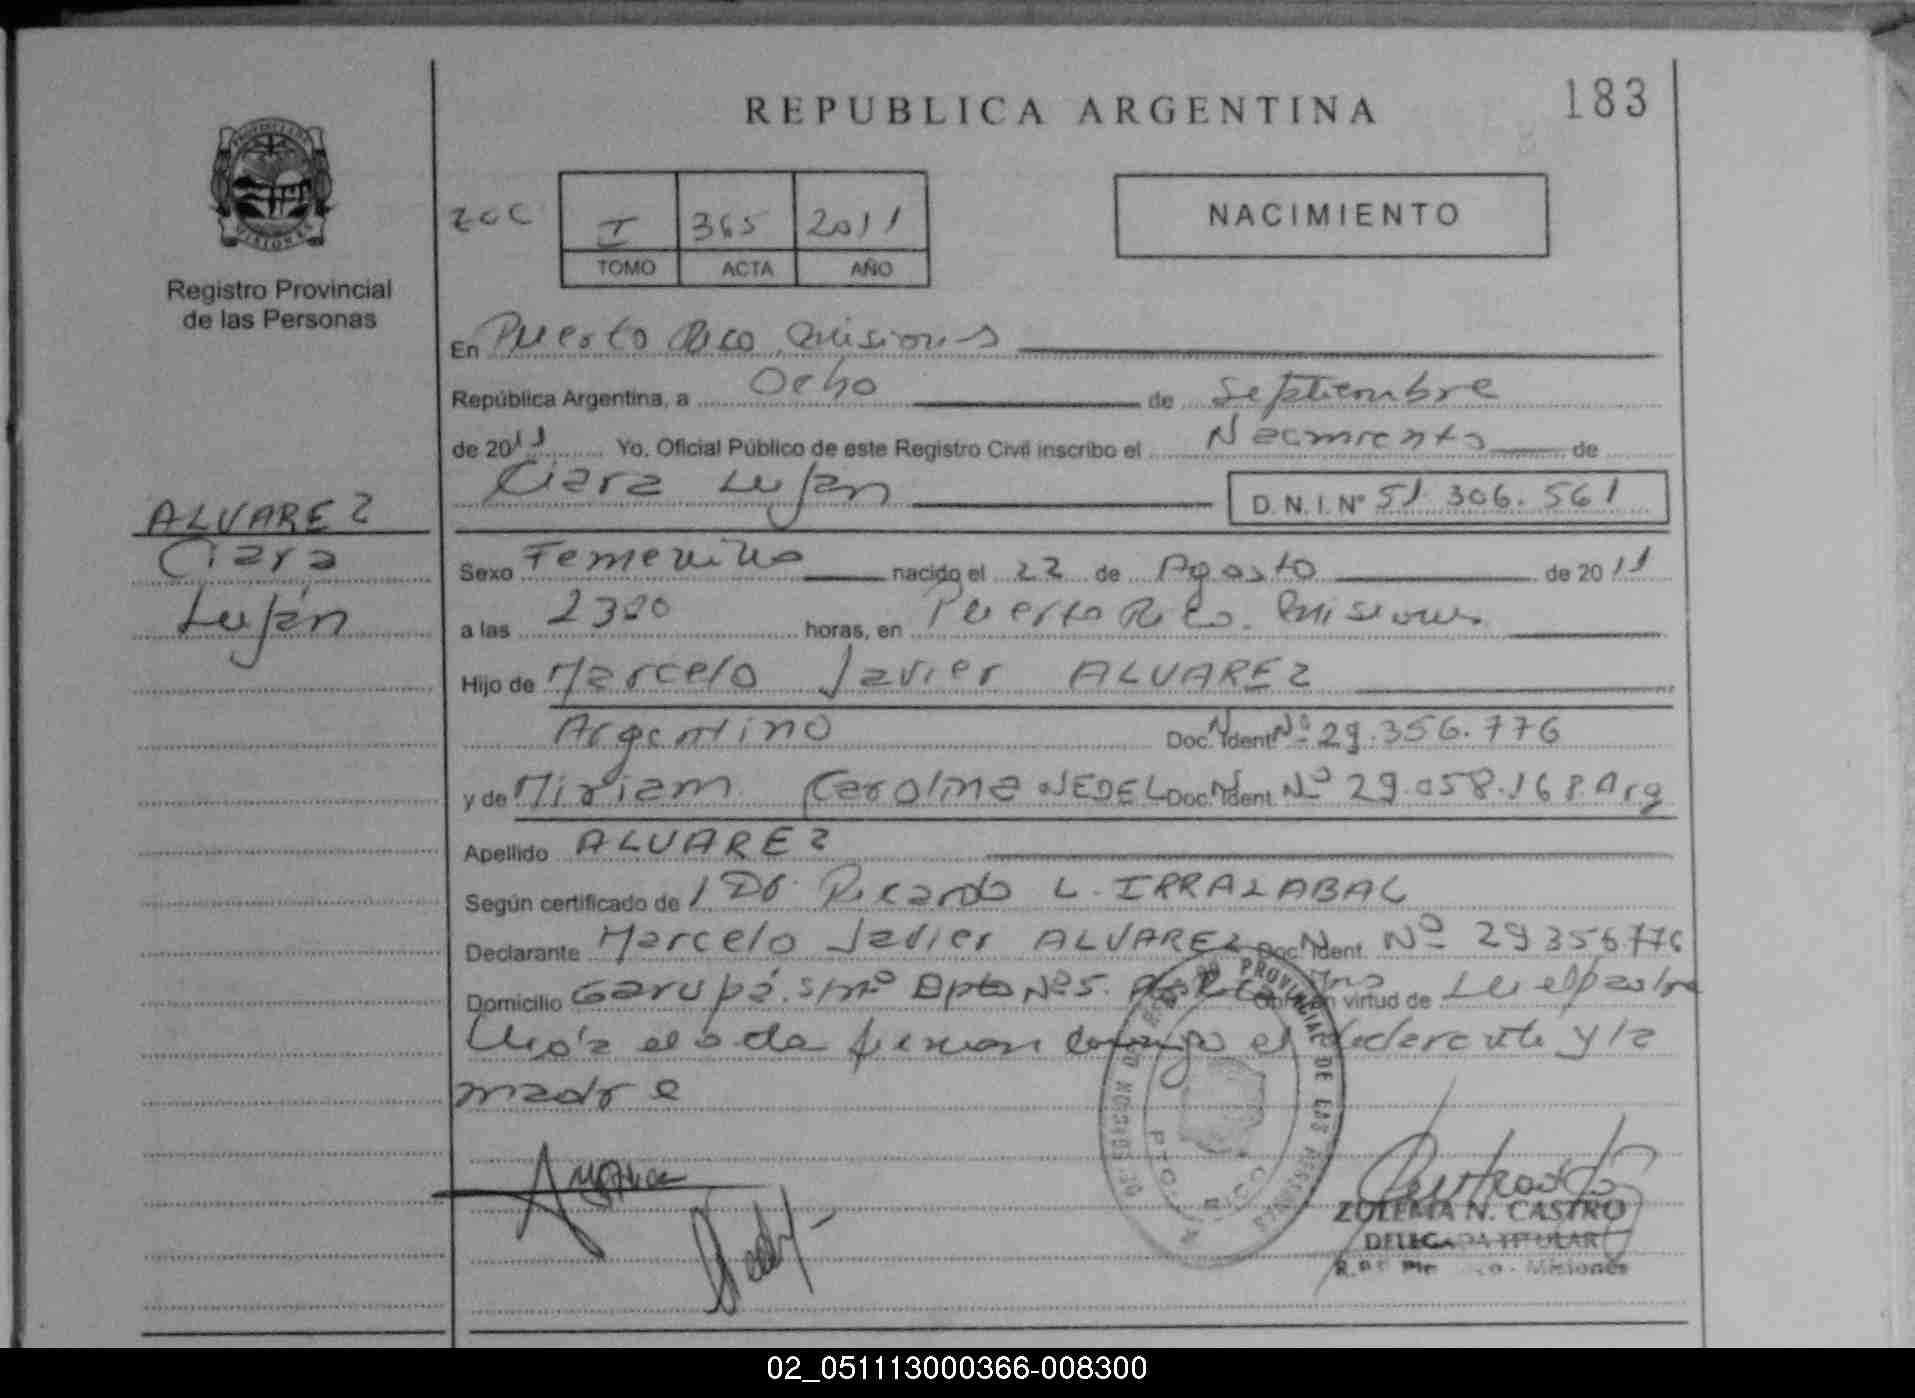 REPUBLICA ARGENTINA
183
PROVINCIA DE
MISIONES
Registro Provincial
de las Personas
I 365 2011
TOMO ACTA AÑO
NACIMIENTO
En Puerto Rico, Misiones
República Argentina, a Ocho de Septiembre
de 2011 Yo, Oficial Público de este Registro Civil inscribo el Nacimiento de
Ciara Luján
D. N. I. Nº 51 306.561
ALVAREZ
Ciara
Luján
Sexo Femenino nacido el 22 de Agosto de 2011
a las 2300 horas, en Puerto Rico. Misiones
Hijo de Marcelo Javier ALVAREZ
Argentino Doc. Ident Nº 29.356.776
y de Miriam Carolina NEDEL Doc. Ident. Nº 29.058.168 Arg
Apellido ALVAREZ
Según certificado de Dr. Ricardo L. IRRALABAL
Declarante Marcelo Javier ALVAREZ Doc. Ident. Nº 29356.776
Domicilio Garupá. s/nº Dpto Nº 5. Obra en virtud de
leída el acta firman conmigo el declarante y la
madre
PROVINCIAL DE LAS PERSONAS
PTO. RICO
ZULEMA N. CASTRO
DELEGADA TITULAR
Misiones
02_051113000366-008300